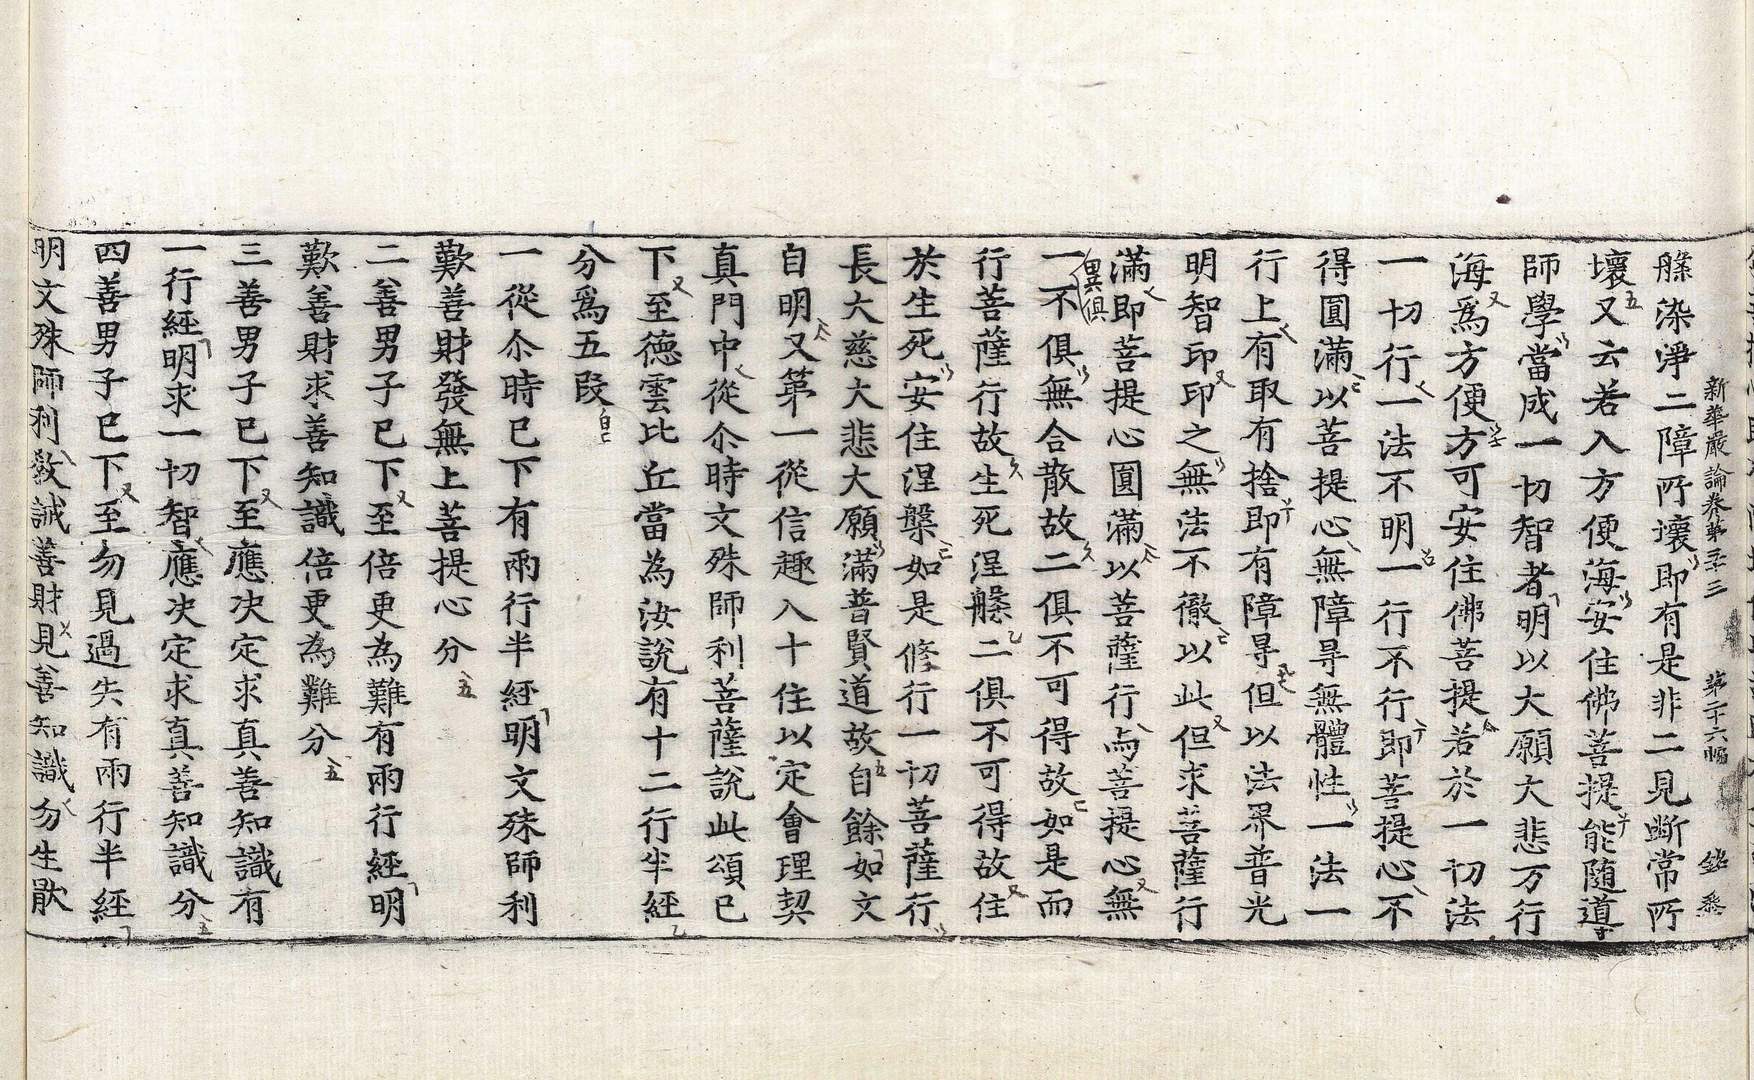 新華嚴論卷第三十三 第二十六幅
槃染淨二障所壞即有是非二見斷常所
壞又云若入方便海安住佛菩提能隨導
師學當成一切智者明以大願大悲万行
海爲方便方可安住佛菩提若於一切法
一切行一法不明一行不行即菩提心不
得圓滿以菩提心無障㝵無體性一法一
行上有取有捨即有障㝵但以法界普光
明智印印之無法不徹以此但求菩薩行
滿即菩提心圓滿以菩薩行与菩提心無
異俱
一不俱無合散故二俱不可得故如是而
行菩薩行故生死涅槃二俱不可得故住
於生死安住涅槃如是修行一切菩薩行
長大慈大悲大願滿普賢道故自餘如文
自明又第一從信趣入十住以定會理契
真門中從尒時文殊師利菩薩說此頌已
下至德雲比丘當為汝說有十二行半經
分爲五段
一從尒時已下有兩行半經明文殊師利
歎善財發無上菩提心分
二善男子已下至倍更為難有兩行經明
歎善財求善知識倍更為難分
三善男子已下至應决定求真善知識有
一行經明求一切智應决定求真善知識分
四善男子已下至勿見過失有兩行半經
明文殊師利教誡善財見善知識勿生猒